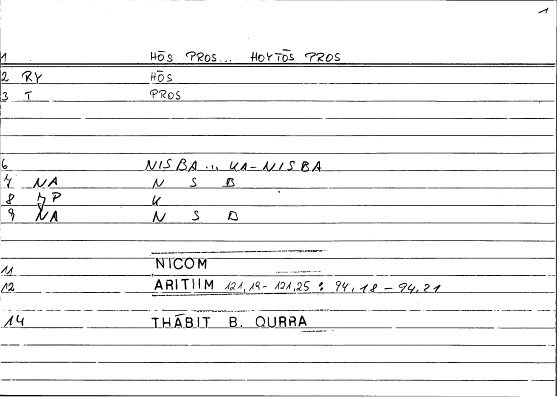 1
1 HŌS PROS... HOYTŌS PROS
2 RY HŌS
3 T PROS
6 NISBA... KA-NISBA
7 NA N S B
8 7P K
9 NA N S D
11 NICOM
12 ARITIIM 121,19-121,25 : 94,18-94,21
14 THĀBIT B. QURRA